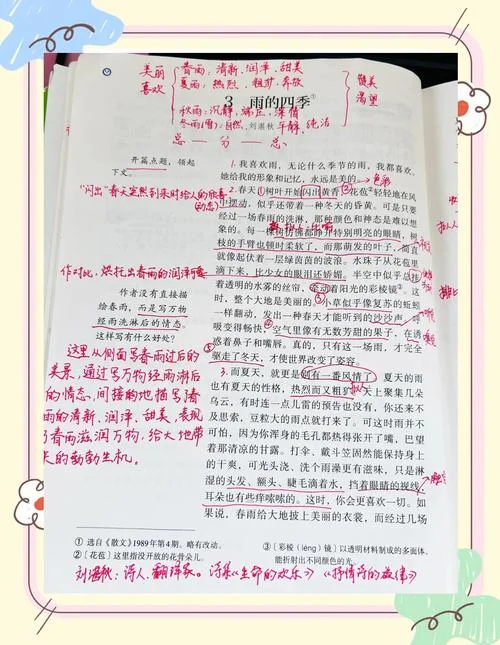 美丽
喜欢
春雨：清新、润泽、甜美
夏雨：热烈、粗犷、奔放
秋雨：沉静、端庄、深情
冬雨(雪)：自然、平静、纯洁
赞美
渴望
3 雨的四季①
刘湛秋
总 — 分 — 总
开篇点题，领起
下文。
1.我喜欢雨，无论什么季节的雨，我都喜欢。
她给我的形象和记忆，永远是美的。
色彩
"闪出"春天突然到来时给人的欣喜
(动态)
2.春天，树叶开始闪出黄青，花苞②轻轻地在风
中摆动，似乎还带着一种冬天的昏黄。可是只要
经过一场春雨的洗淋，那种颜色和神态是难以想
象的。每一棵树仿佛都睁开特别明亮的眼睛，树
枝的手臂也顿时柔软了，而那萌发的叶子，简直
就像起伏着一层绿茵茵的波浪。水珠子从花苞里
滴下来，比少女的眼泪还娇媚。半空中似乎总挂
着透明的水雾的丝帘，牵动着阳光的彩棱镜③。这
时，整个大地是美丽的。小草似乎像复苏的蚯蚓
一样翻动，发出一种春天才能听到的沙沙声。呼
吸变得畅快，空气里像有无数芳甜的果子，在诱
惑着鼻子和嘴唇。真的，只有这一场雨，才完全
驱走了冬天，才使世界改变了姿容。
作对比，烘托出春雨的润泽
作者没有直接描
绘春雨，而是写万物
经雨洗淋后的情态。
这样写有什么好处？
这里从侧面写春雨过后的
美景，通过写万物经雨淋后
的情态，间接的地描写春
雨的清新、润泽、甜美，表现
了春雨滋润万物，给大地带
来的勃勃生机。
3.而夏天，就更是别有一番风情了。夏天的雨
也有夏天的性格，热烈而又粗犷。天上聚集几朵
乌云，有时连一点儿雷的预告也没有，你还来不
及思索，豆粒大的雨点就打来了。可这时雨并不
可怕，因为你浑身的毛孔都热得张开了嘴，巴望
着那清凉的甘露。打伞、戴斗笠固然能保持身上
的干爽，可光头浇、洗个雨澡更有滋味，只是淋
湿的头发、额头、睫毛滴着水，挡着眼睛的视线，
耳朵也有些痒嗦嗦的。这时，你会更喜欢一切。如
果说，春雨给大地披上美丽的衣裳，而经过几场
① 选自《散文》1989年第4期。略有改动。
② [花苞] 这里指没开放的花骨朵儿。
③ [彩棱（léng）镜] 以透明材料制成的多面体，
能折射出不同颜色的光。
刘湛秋：诗人、翻译家。诗集《生命的欢乐》《抒情诗的旋律》